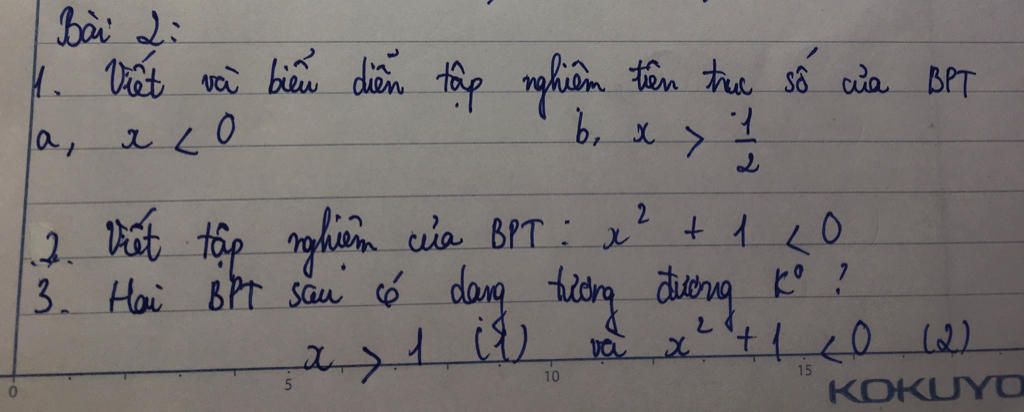 Bài 2:
1. Viết và biểu diễn tập nghiệm tiên trục số của BPT
a, x < 0 b, x > 1/2
2. Viết tập nghiệm của BPT: x² + 1 < 0
3. Hai BPT sau có dạng tương đương K⁰?
x > 1 (1) và x² + 1 < 0 (2)
0 5 10 15 KOKUYO